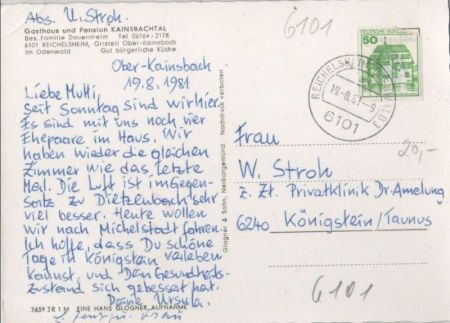 Abs. U. Stroh.
Gasthaus und Pension KAINSBACHTAL
Bes. Familie Dauernheim Tel 06164/2178
6101 REICHELSHEIM, Ortsteil Ober-Kainsbach
im Odenwald Gut bürgerliche Küche
Ober-Kainsbach
19.8.1981
Liebe Mutti,
Seit Sonntag sind wir hier.
Es sind mit uns noch vier
Ehepaare im Haus. Wir
haben wieder die gleichen
Zimmer wie das letzte
Mal. Die Luft ist im Gegen-
satz zu Dietzenbach sehr
viel besser. Heute wollen
wir nach Michelstadt fahren.
Ich hoffe, dass Du schöne
Tage in Königstein verleben
kannst, und Dein Gesundheits-
zustand sich gebessert hat.
Deine Ursula.
7659 3 R 1 M EINE HANS GLOGNER AUFNAHME
Glogner & Sohn, Neckargemünd Nachdruck verboten
6101
50
DEUTSCHE BUNDESPOST
REICHELSHEIM
19.-8.81-9
6101
20,-
Frau
W. Stroh
z. Zt. Privatklinik Dr. Amelung
6240 Königstein/Taunus
6101